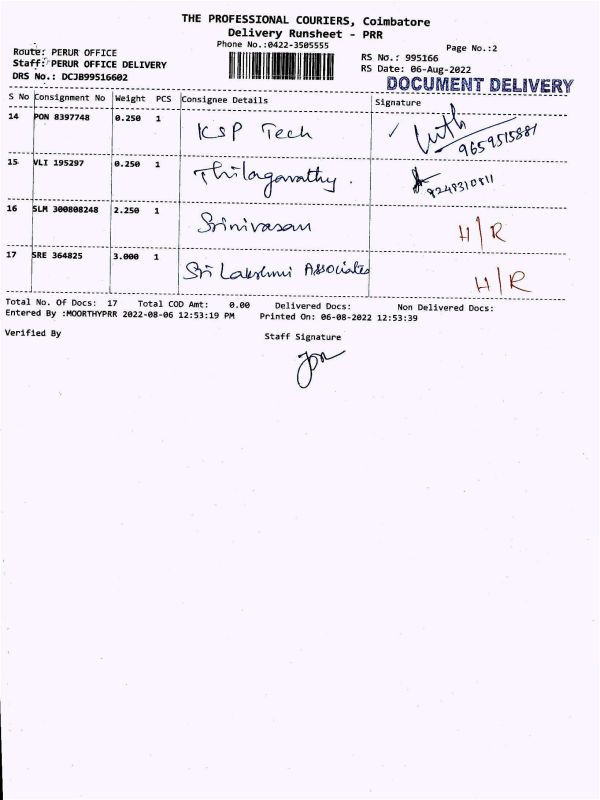 THE PROFESSIONAL COURIERS, Coimbatore
Delivery Runsheet - PRR
Phone No.:0422-3505555
Page No.:2
Route: PERUR OFFICE
RS No.: 995166
Staff: PERUR OFFICE DELIVERY
RS Date: 06-Aug-2022
DRS No.: DCJB99516602
DOCUMENT DELIVERY
S No Consignment No Weight PCS Consignee Details Signature
14 PON 8397748 0.250 1 KSP Tech 9659515881
15 VLI 195297 0.250 1 Thilagavathy. 9248310811
16 SLM 300808248 2.250 1 Srinivasan H/R
17 SRE 364825 3.000 1 Sri Lakshmi Associates H/R
Total No. Of Docs: 17 Total COD Amt: 0.00 Delivered Docs: Non Delivered Docs:
Entered By :MOORTHYPRR 2022-08-06 12:53:19 PM Printed On: 06-08-2022 12:53:39
Verified By Staff Signature